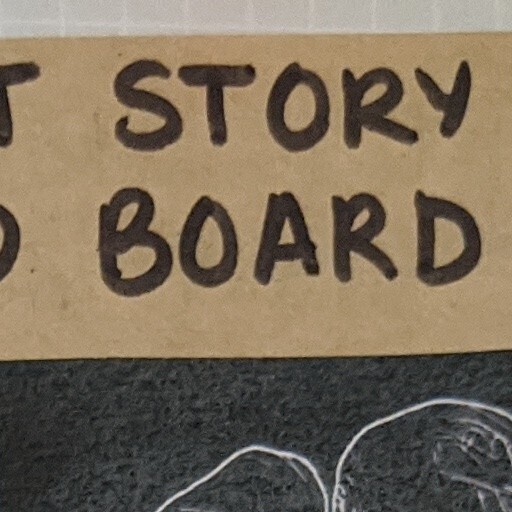 T STORY
D BOARD